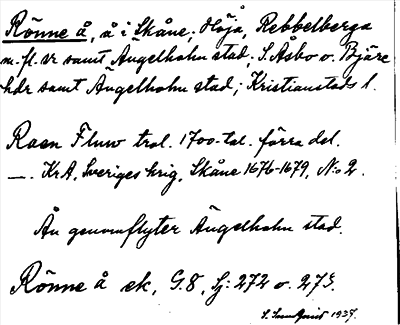 Rönne å, å i Skåne; Höja, Rebbelberga
m.fl. sr samt Ängelholm stad; S. Åsbo o. Bjäre
hdr samt Ängelholm stad; Kristianstads l.
Raen Fluw trol. 1700-tal. förra del.
—. KrA, Sveriges krig, Skåne 1676-1679, N:o 2.
Ån genomflyter Ängelholm stad.
Rönne å ek, G.8, Sj: 272 o. 273.
1937.